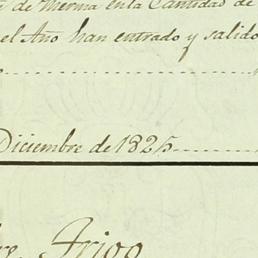 de Merma en la Cantidad de
el Año han entrado y salido
Diciembre de 1825
Trigo